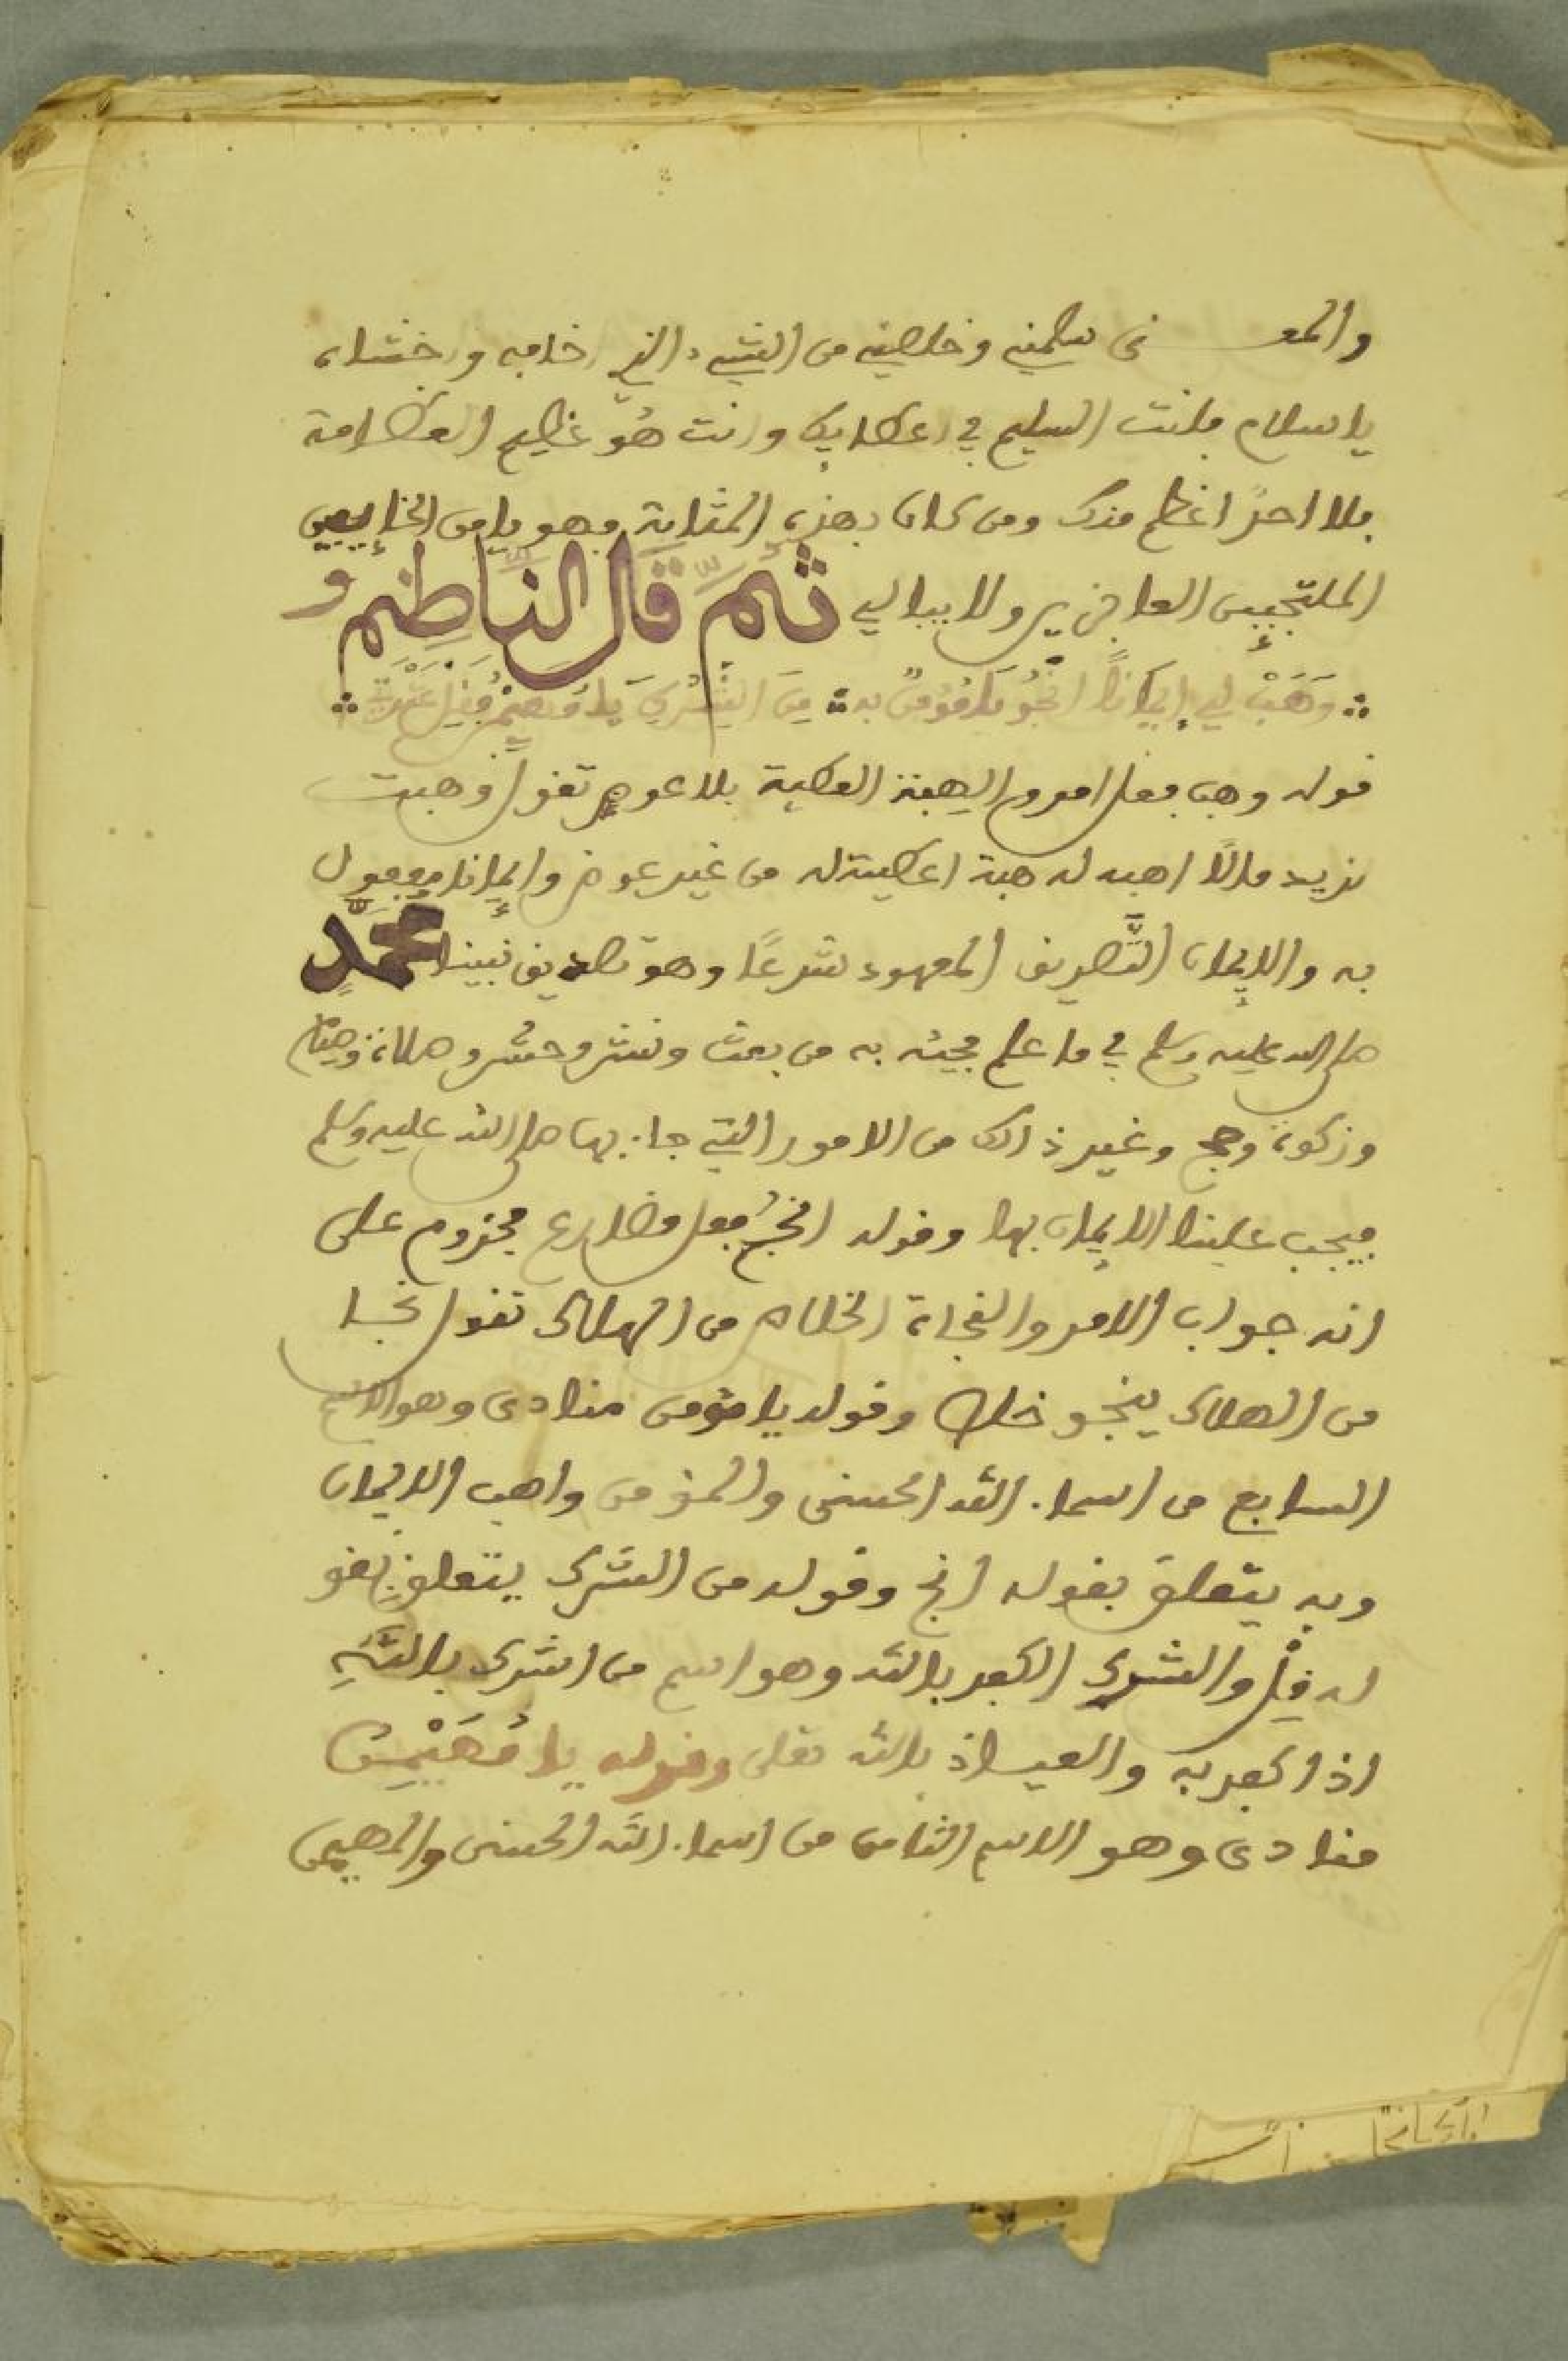 والمعنى سلمني وخلصني من الشيء الذي اخافه واخشاه
يا سلام فانت السليم في اعطايك وانت هو عظيم العظامة
فلا احدا اعظم منك ومن كان بهذه المثابة فهو يامن الخايبين
الملتجيين العاجزين ولا يبالي ثم قال الناظم و
وهب لي ايمانا انج يا مؤمن به من الشرك يا مهيمن عثرتي
قوله وهب فعل امر من الهبة العطية بلا عوض تقول وهبت
لزيد مالا اهبه له هبة اعطيته له من غير عوض وايمانا مفعول
به والايمان التصديق المعهود شرعا وهو تصديق نبينا محمد
صلى الله عليه وسلم في ما علم مجيئه به من بعث ونشر وحشر وصلاة وصيام
وزكوة وحج وغير ذالك من الامور التي جاء بها صلى الله عليه وسلم
فيجب علينا الايمان بها وقوله انج فعل مضارع مجزوم على
انه جواب الامر والنجاة الخلاص من الهلاك تقول نجا
من الهلاك ينجو خلص وقوله يا مؤمن منادى وهو الاسم
السابع من اسماء الله الحسنى والمؤمن واهب الايمان
وبه يتعلق بقوله انج وقوله من الشرك يتعلق بقو
له قبل والشرك الكفر بالله وهو اسم من اشرك بالله
اذا كفر به والعياذ بالله تعلى وقوله يا مهيمن
منادى وهو الاسم الثامن من اسماء الله الحسنى والمهيمن